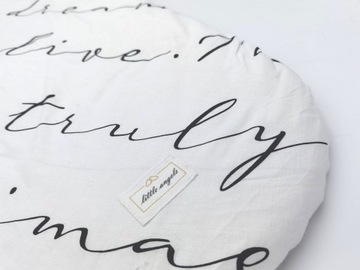 dream
live. Th
truly
little angels
imag